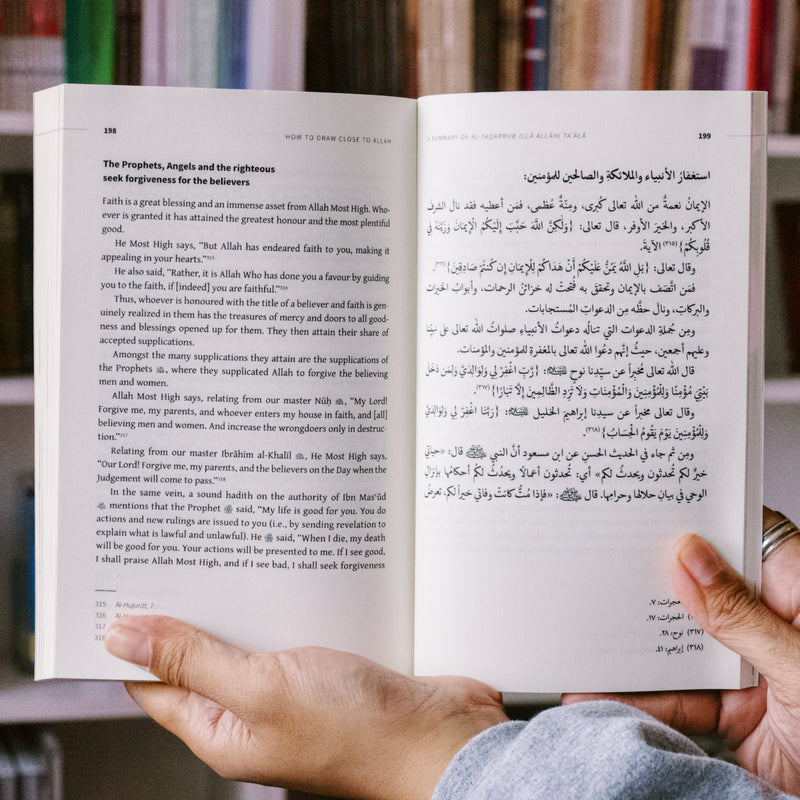 198
HOW TO DRAW CLOSE TO ALLAH
The Prophets, Angels and the righteous
seek forgiveness for the believers
Faith is a great blessing and an immense asset from Allah Most High. Who-
ever is granted it has attained the greatest honour and the most plentiful
good.
He Most High says, “But Allah has endeared faith to you, making it
appealing in your hearts.”³¹⁵
He also said, “Rather, it is Allah Who has done you a favour by guiding
you to the faith, if [indeed] you are faithful.”³¹⁶
Thus, whoever is honoured with the title of a believer and faith is gen-
uinely realized in them has the treasures of mercy and doors to all good-
ness and blessings opened up for them. They then attain their share of
accepted supplications.
Amongst the many supplications they attain are the supplications of
the Prophets, where they supplicated Allah to forgive the believing
men and women.
Allah Most High says, relating from our master Nūḥ, “My Lord!
Forgive me, my parents, and whoever enters my house in faith, and [all]
believing men and women. And increase the wrongdoers only in destruc-
tion.”³¹⁷
Relating from our master Ibrāhīm al-Khalīl, He Most High says,
“Our Lord! Forgive me, my parents, and the believers on the Day when the
Judgement will come to pass.”³¹⁸
In the same vein, a sound hadith on the authority of Ibn Mas‘ūd
mentions that the Prophet ﷺ said, “My life is good for you. You do
actions and new rulings are issued to you (i.e., by sending revelation to
explain what is lawful and unlawful). He ﷺ said, “When I die, my death
will be good for you. Your actions will be presented to me. If I see good,
I shall praise Allah Most High, and if I see bad, I shall seek forgiveness
315 Al-Ḥujurāt, 7
316
317
318
A SUMMARY OF AL-TAQARRUB ILLĀ ALLĀHI TA‘ĀLĀ
199
استغفارُ الأنبياء والملائكةِ والصالحين للمؤمنين:
الإيمانُ نعمةٌ من الله تعالى كُبرى، ومِنّةٌ عُظمى، فمَن أعطيه فقد نالَ الشرفَ
الأكبر، والخيرَ الأوفر، قال تعالى: {وَلَكِنَّ اللَّهَ حَبَّبَ إِلَيْكُمُ الْإِيمَانَ وَزَيَّنَهُ فِي
قُلُوبِكُمْ}(٣١٥) الآيةَ.
وقال تعالى: {بَلِ اللَّهُ يَمُنُّ عَلَيْكُمْ أَنْ هَدَاكُمْ لِلْإِيمَانِ إِن كُنتُمْ صَادِقِينَ}(٣١٦).
فمَن اتَّصَف بالإيمان وتحقق به فُتحتْ له خزائنُ الرحمات، وأبوابُ الخيرات
والبركاتِ، ونالَ حظَّه مِن الدعواتِ المُستجابات.
ومِن جُملةِ الدعوات التي تنالُه دعواتُ الأنبياءِ صلواتُ الله تعالى على نبيّنا
وعليهم أجمعين، حيثُ إنَّهم دعُوا الله تعالى بالمغفرةِ للمؤمنين والمؤمنات.
قال الله تعالى مُخبِراً عن سيّدِنا نوح: {رَّبِّ اغْفِرْ لِي وَلِوَالِدَيَّ وَلِمَن دَخَلَ
بَيْتِيَ مُؤْمِنًا وَلِلْمُؤْمِنِينَ وَالْمُؤْمِنَاتِ وَلَا تَزِدِ الظَّالِمِينَ إِلَّا تَبَارًا}(٣١٧).
وقال تعالى مخبراً عن سيدِنا إبراهيمَ الخليل: {رَبَّنَا اغْفِرْ لِي وَلِوَالِدَيَّ
وَلِلْمُؤْمِنِينَ يَوْمَ يَقُومُ الْحِسَابُ}(٣١٨).
ومِن ثم جاء في الحديث الحسنِ عن ابن مسعود أنَّ النبي ﷺ قال: «حياتي
خيرٌ لكم تُحدثون ويحدثُ لكم» أي: تُحدثون أعمالًا ويحدُثُ لكم أحكامُها بإنزالِ
الوحي في بيانِ حلالها وحرامِها. قال ﷺ: «فإذا مُتُّ كانتْ وفاتي خيراً لكم، تعرضُ
حجرات: ٧.
الحجرات: ١٧.
(٣١٧) نوح: ٢٨.
(٣١٨) إبراهيم: ٤١.